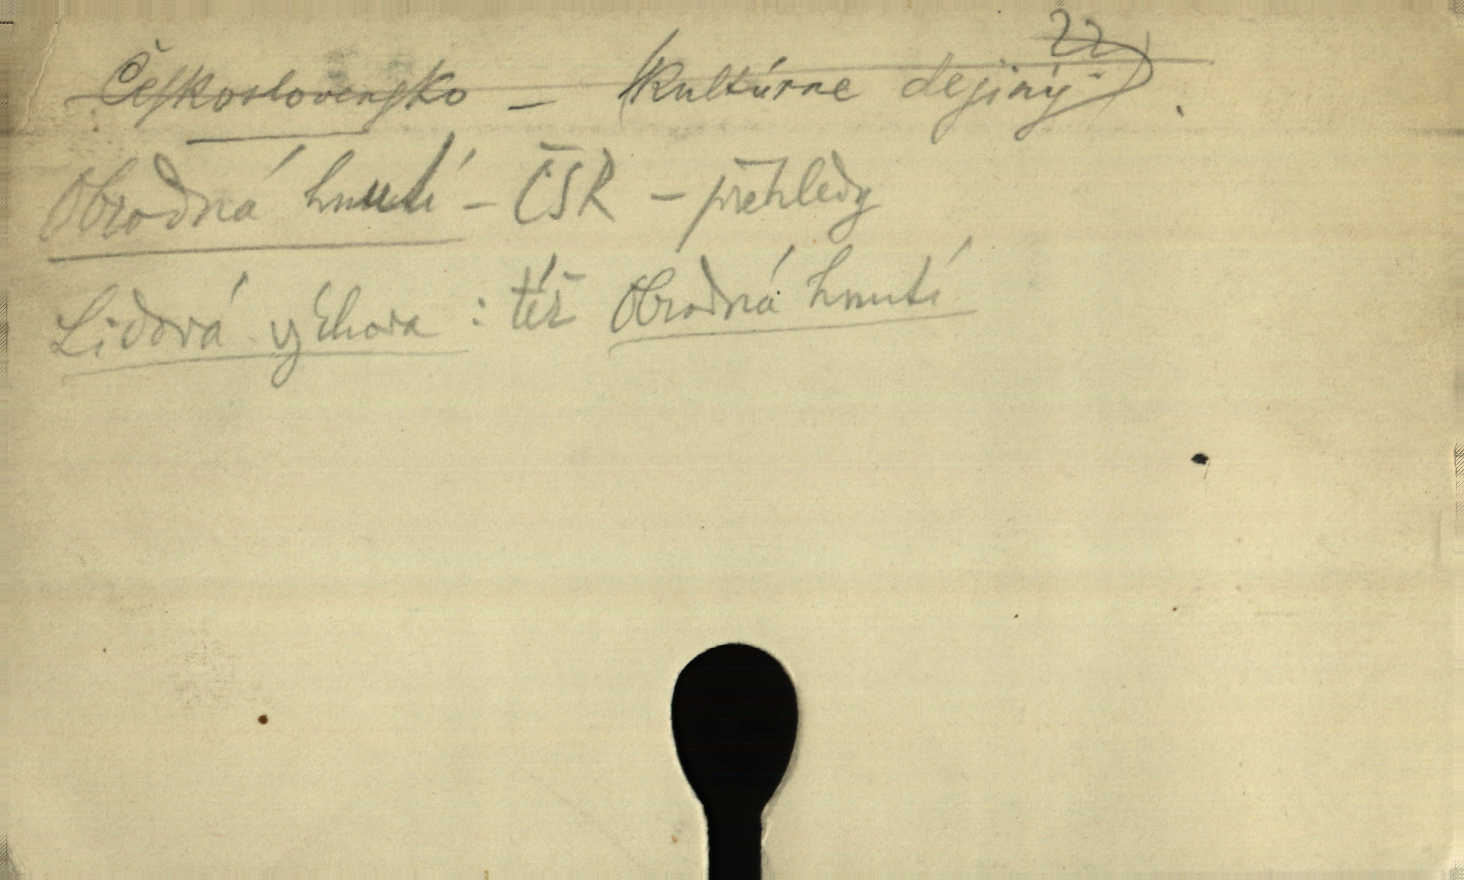 22
Československo - Kultúrne dejiny.
Obrodná hnutí - ČSR - přehledy
Lidová výchova : též Obrodná hnutí